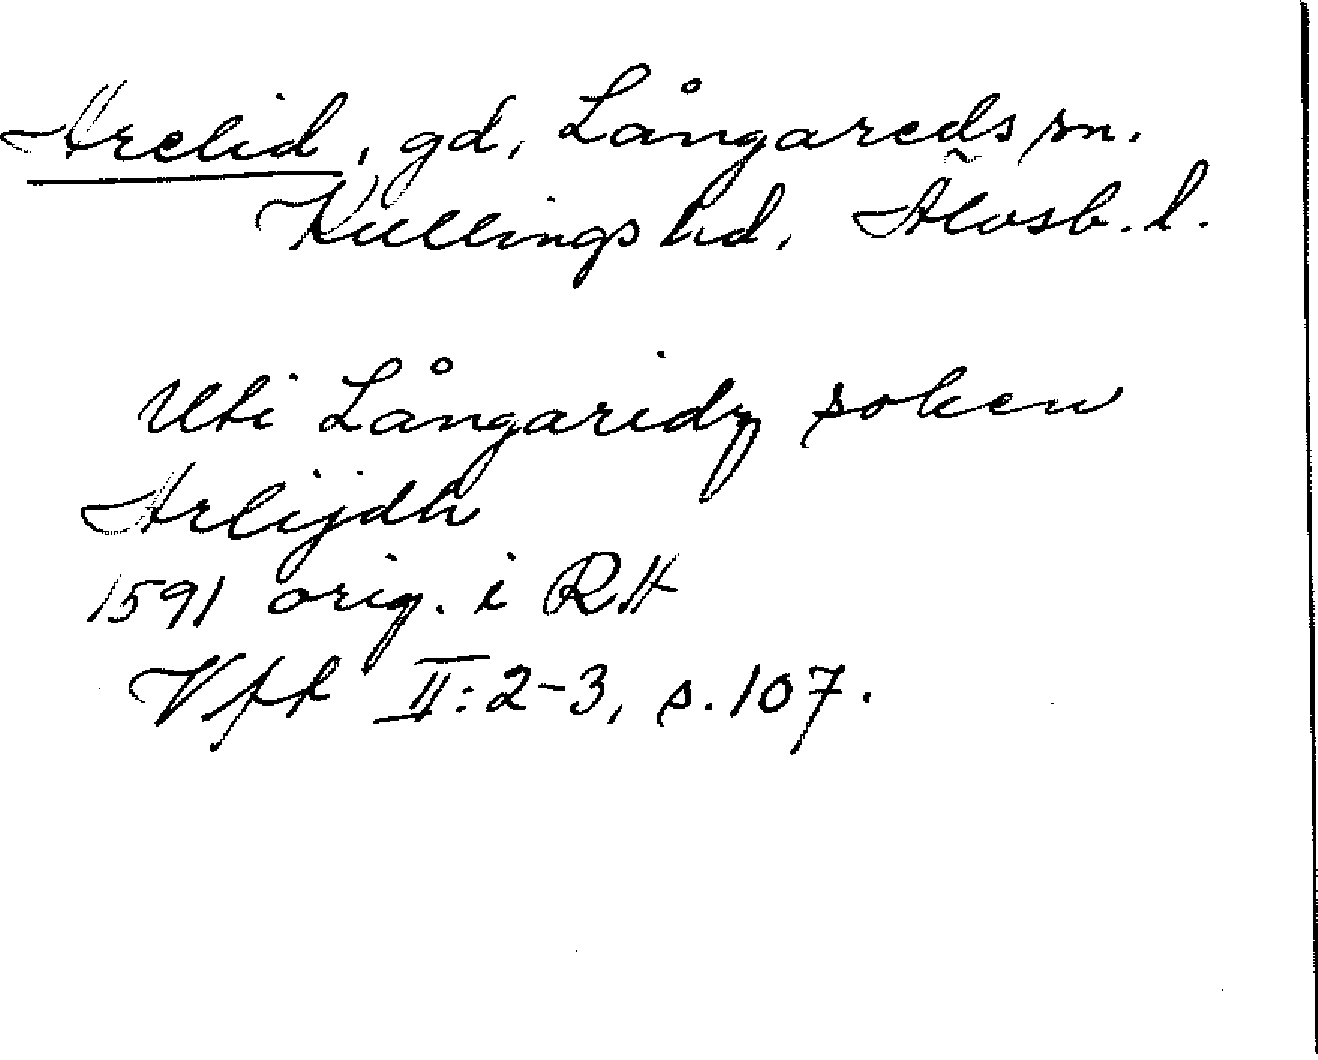 Arelid, gd, Långareds sn.
Kullings hd, Älvsb. l.
Uti Långaridz soken
Arlijdh
1591 orig. i RA
Vft II:2-3, s. 107.